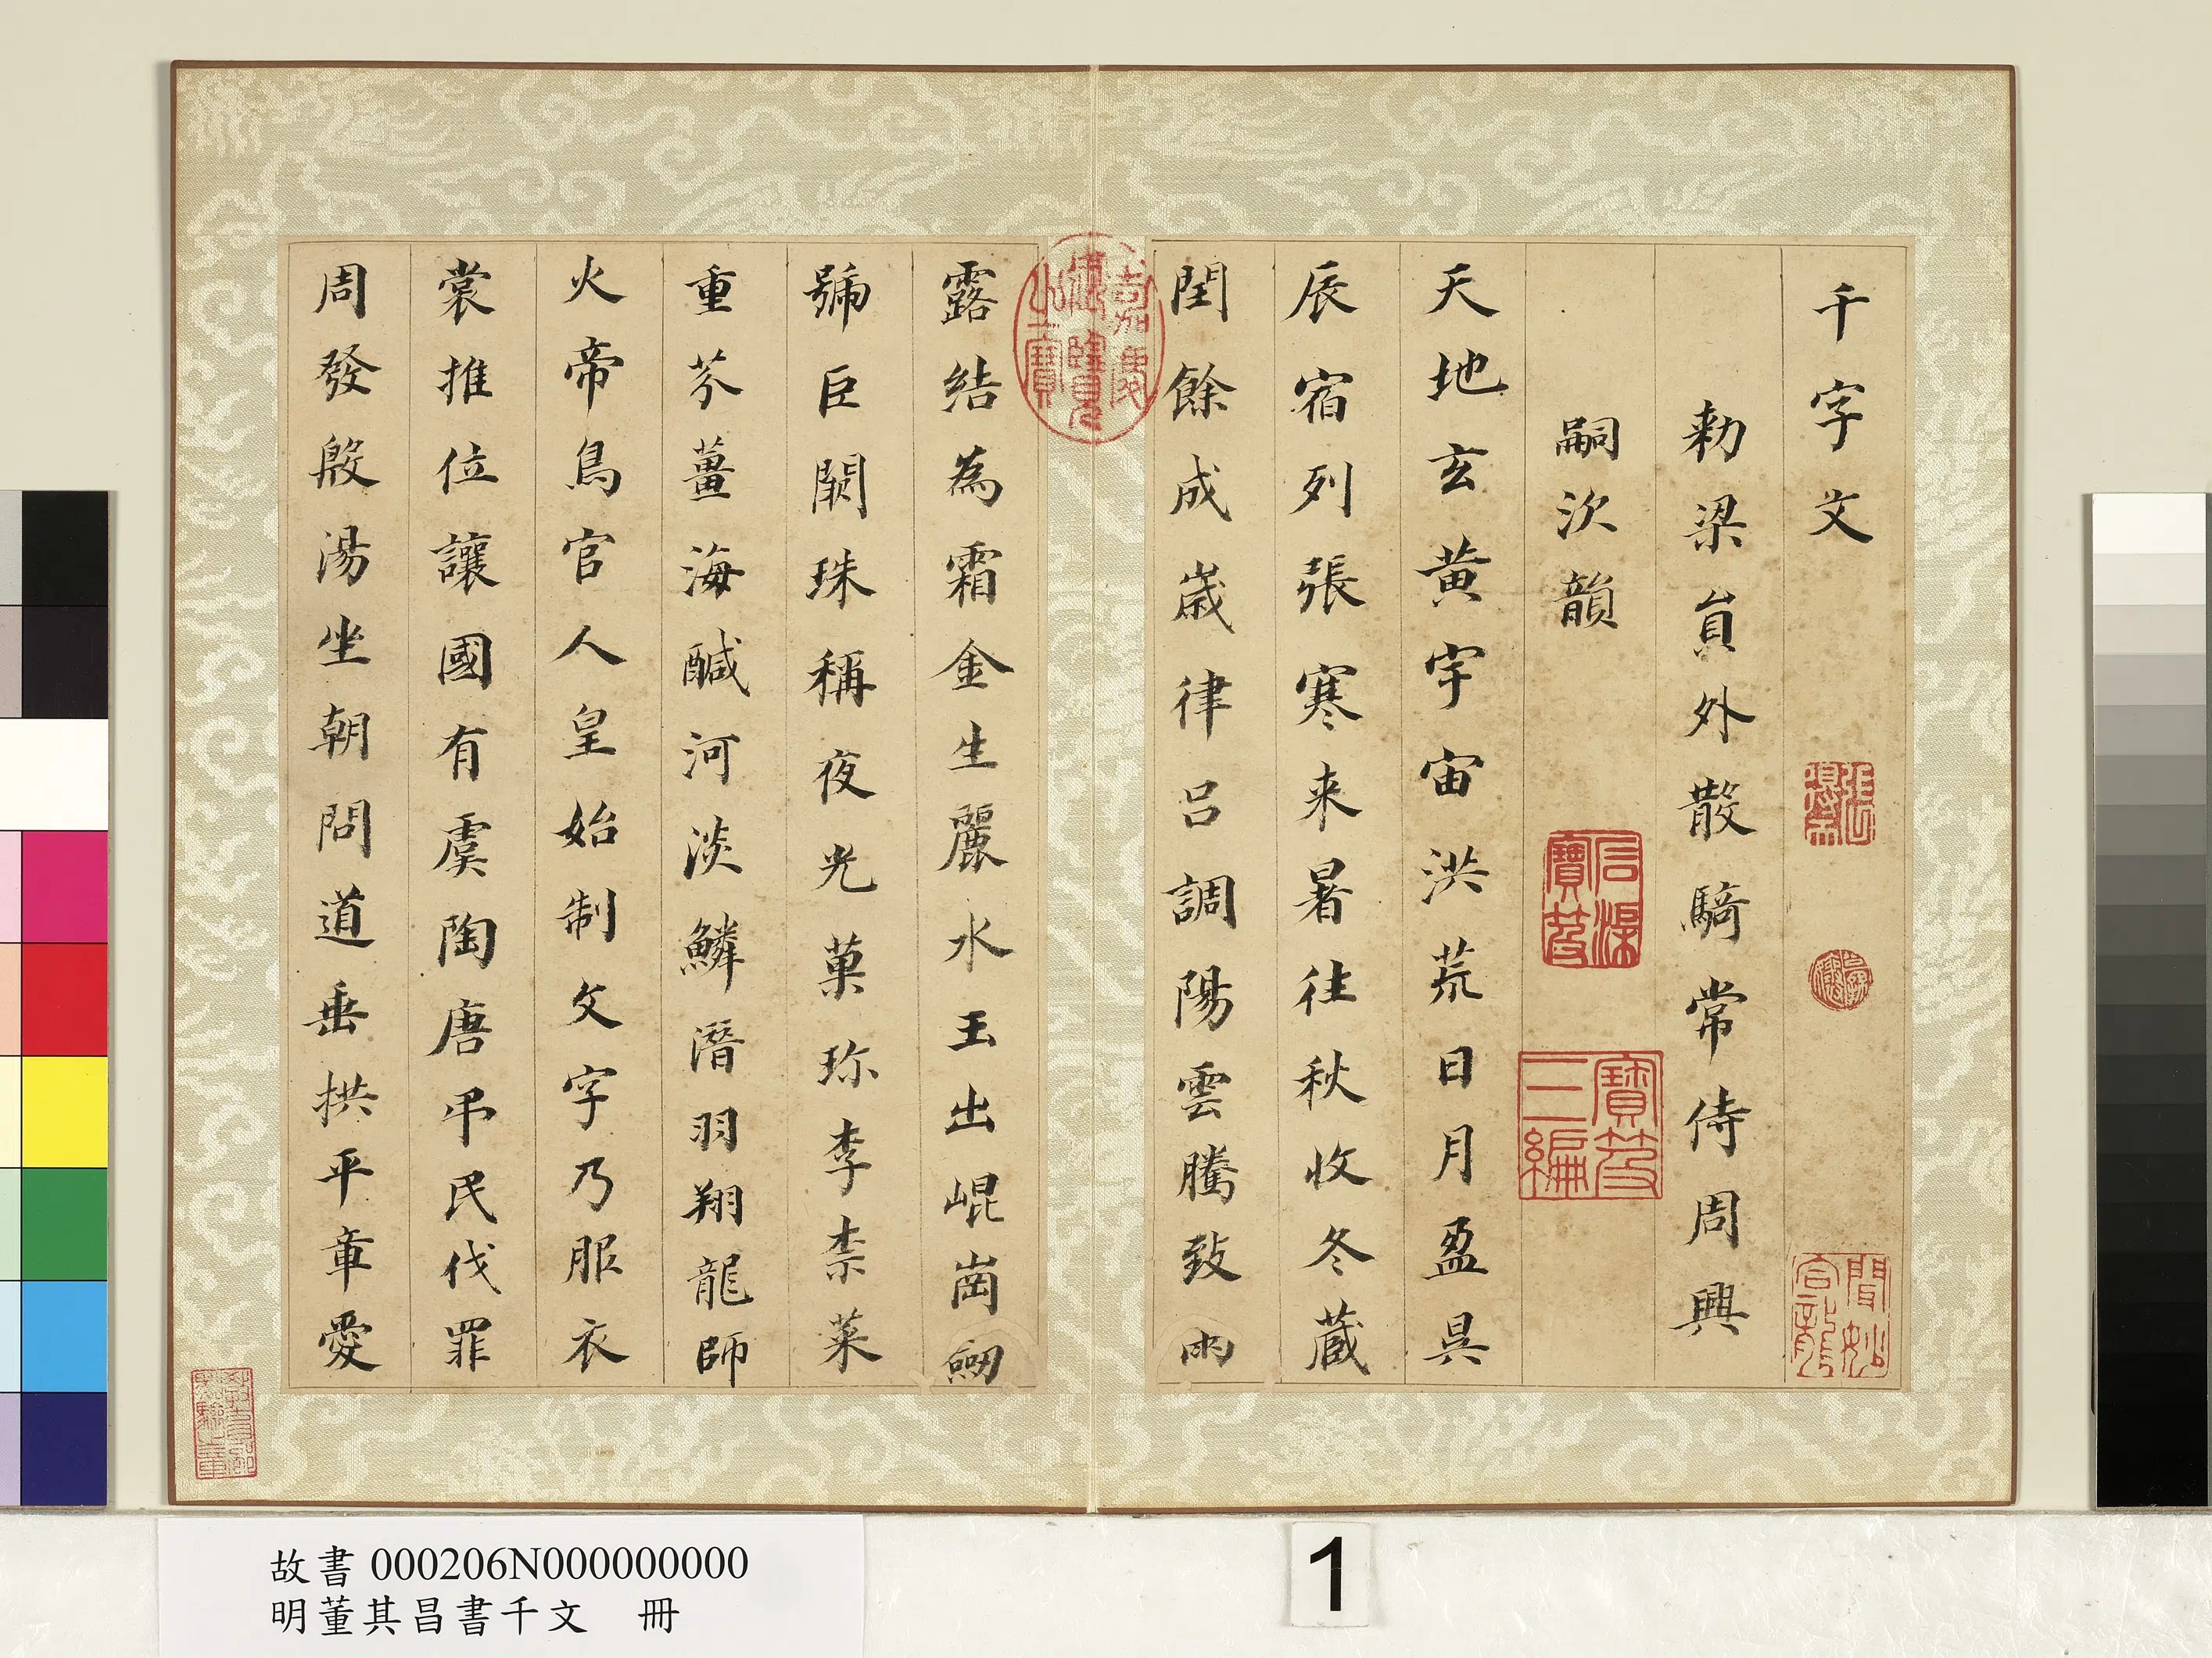 千字文
勑梁員外散騎常侍周興
嗣次韻
天地玄黃宇宙洪荒日月盈昃
辰宿列張寒来暑往秋收冬蔵
閏餘成歲律呂調陽雲騰致雨
露結為霜金生麗水玉出崐崗劒
號巨闕珠稱夜光菓珎李柰菜
重芥薑海鹹河淡鱗潛羽翔龍師
火帝鳥官人皇始制文字乃服衣
裳推位讓國有虞陶唐弔民伐罪
周發殷湯坐朝問道垂拱平章愛
嘉慶御覽之寶
寶笈三編
故書 000206N000000000
明董其昌書千文 冊
1